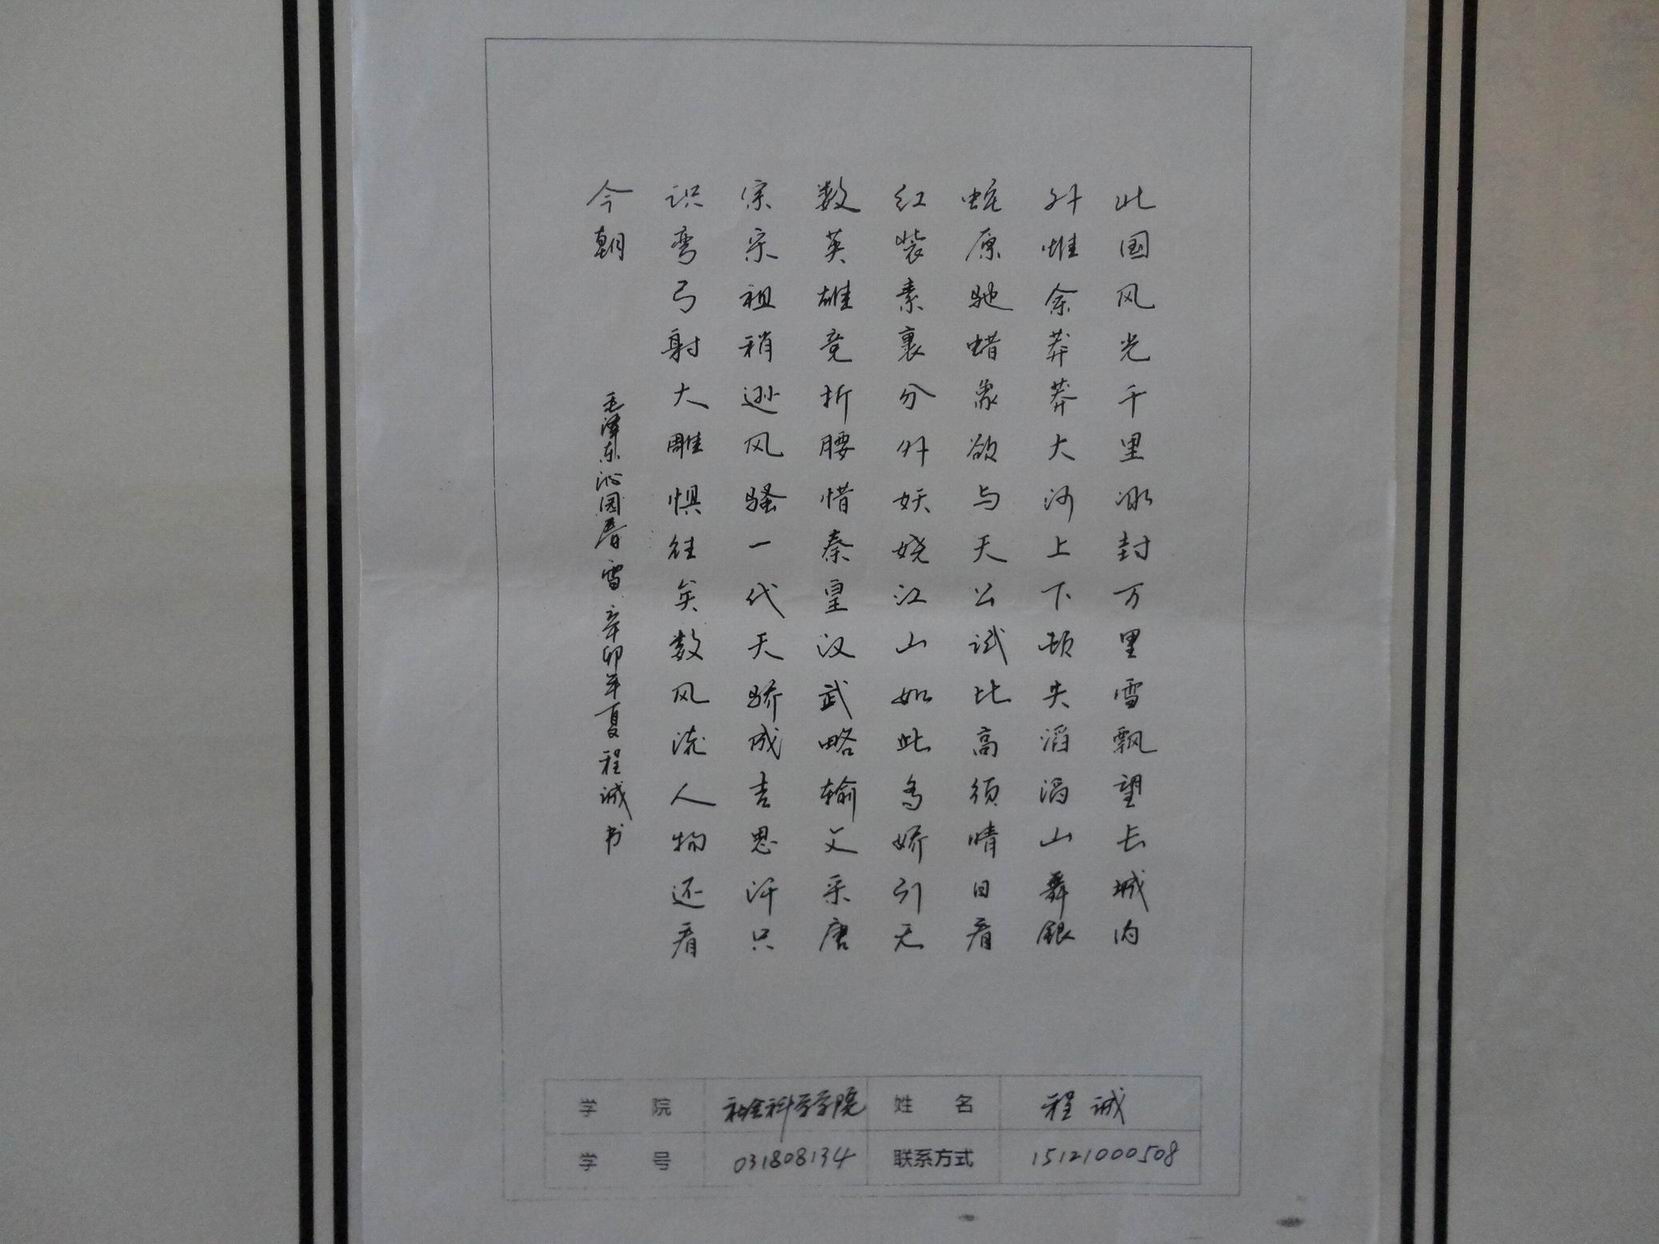 此国风光千里冰封万里雪飘望长城内
外惟余莽莽大河上下顿失滔滔山舞银
蛇原驰蜡象欲与天公试比高须晴日看
红装素裹分外妖娆江山如此多娇引无
数英雄竞折腰惜秦皇汉武略输文采唐
宗宗祖稍逊风骚一代天骄成吉思汗只
识弯弓射大雕惧往矣数风流人物还看
今朝
毛泽东沁园春雪辛卯年夏程诚书
学 院 社会科学学院 姓 名 程诚
学 号 031808134 联系方式 15121000508